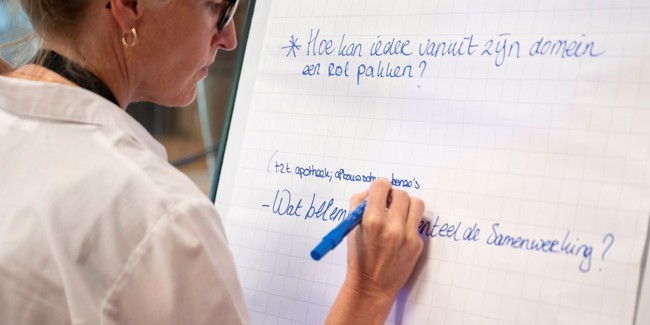 * Hoe kan ieder vanuit zijn domein
een rol pakken?
(tzt apotheek; afbouwschema benzo's
- Wat belem nteel de Samenwerking?